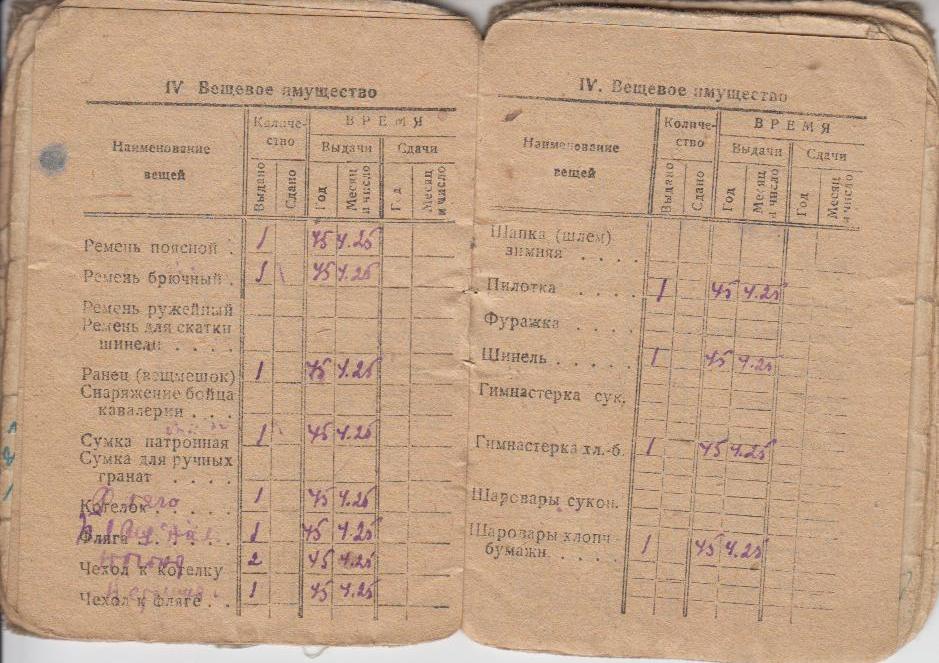 IV Вещевое имущество
Наименование вещей
Количество
ВРЕМЯ
Выдачи
Сдачи
Выдано
Сдано
Год
Месяц и число
Год
Месяц и число
Ремень поясной . 1 45 4.25
Ремень брючный . 1 45 4.25
Ремень ружейный
Ремень для скатки
шинели . . . .
Ранец (вещмешок) 1 45 4.25
Снаряжение бойца
кавалерии . . .
Сумка патронная 1 45 4.25
Сумка для ручных
гранат . . . .
Котелок . . . . 1 45 4.25
Фляга . . . . 1 45 4.25
Чехол к котелку 2 45 4.25
Чехол к фляге . . 1 45 4.25
IV. Вещевое имущество
Наименование
вещей
Количе-
ство
ВРЕМЯ
Выдачи
Сдачи
Выдано
Сдано
Год
Месяц и число
Год
Месяц и число
Шапка (шлем)
зимняя . . . .
Пилотка . . . . 1 45 4.25
Фуражка . . . .
Шинель . . . . . 1 45 4.25
Гимнастерка сук.
Гимнастерка хл.-б. 1 45 4.25
Шаровары сукон.
Шаровары хлопч
бумажн. . . . . 1 45 4.25